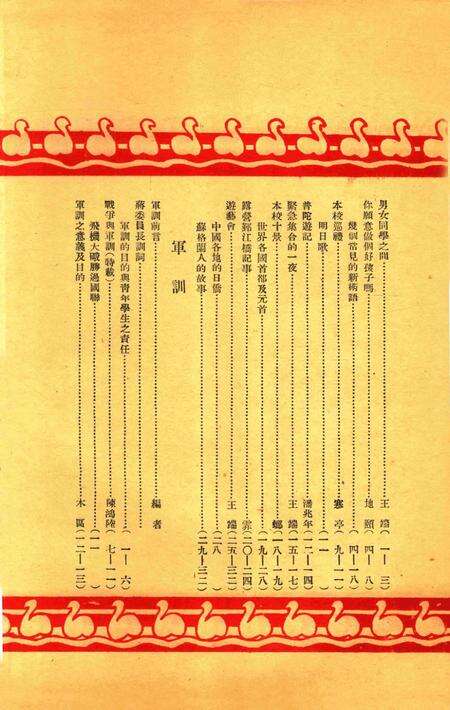 男女同學之間……王端（一—三）
你願意做個好孩子嗎……地頤（四—八）
幾個常見的新術語……（四—八）
本校巡禮……寒亭（九—一一）
明日歌……（一一）
普陀遊記……潘兆年（一二—一四）
緊急集合的一夜……王端（一五—一七）
本校十景……鄉（一八—一九）
世界各國首都及元首……（一九—二八）
露營鄞江橋記事……霏（二〇—二四）
遊藝會……王端（二五—三二）
中國各地的日僑……（二八）
蘇格蘭人的故事……（二九—三二）
軍訓
軍訓前言……編者
蔣委員長訓詞……
軍訓的目的與青年學生之責任……（一—六）
戰爭與軍訓（特載）……陳鴻陸（七—一一）
飛機大礮勝過國聯……（一一）
軍訓之意義及目的……木區（一二—一三）